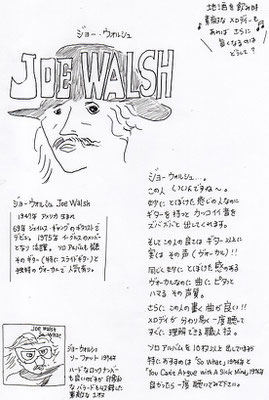 地酒を飲み時
素敵な メロディーも
あれば さらに
旨くなるのは
どうして?
ジョー・ウォルシュ
JOE WALSH
ジョー・ウォルシュ Joe Walsh
1947年 アメリカ 生まれ
69年 ジェイムス・ギャングのギタリストで
デビュー。1975年 イーグルスのメンバー
となり 活躍。ソロアルバムも
そのギター(特に スライドギター)と
独特な ヴォーカルで 人気有り。
ジョー ウォルシュ…。
この人 いいんですね〜。
妙に とぼけた 感じの人なのに
ギターを 持つと カッコイイ 音を
ズバズバと 出してくれます。
そして この人の 良さは ギター 以上に
実は その 声(ヴォーカル)!!
同じく 妙に とぼけた 感のある
ヴォーカルなのに 曲に ピタッと
ハマる その 声質。
さらに この人の 書く曲が 良い!!
メロディが 分かり易く 一度 聴いて
すぐに 理解できる 職人 技。
ソロ アルバムを 10枚以上 出してますが
特に おすすめは「So What」1974年と
「You Can't Argue with A Sick Mind」1976年
良かったら 一度 聴いてみて下さい。
JOE WALSH
So What
ジョー ウォルシュ
ソー ファット 1974年
ハードな ロックナンバー
も良いのですが
なバラードも
素敵な 1枚